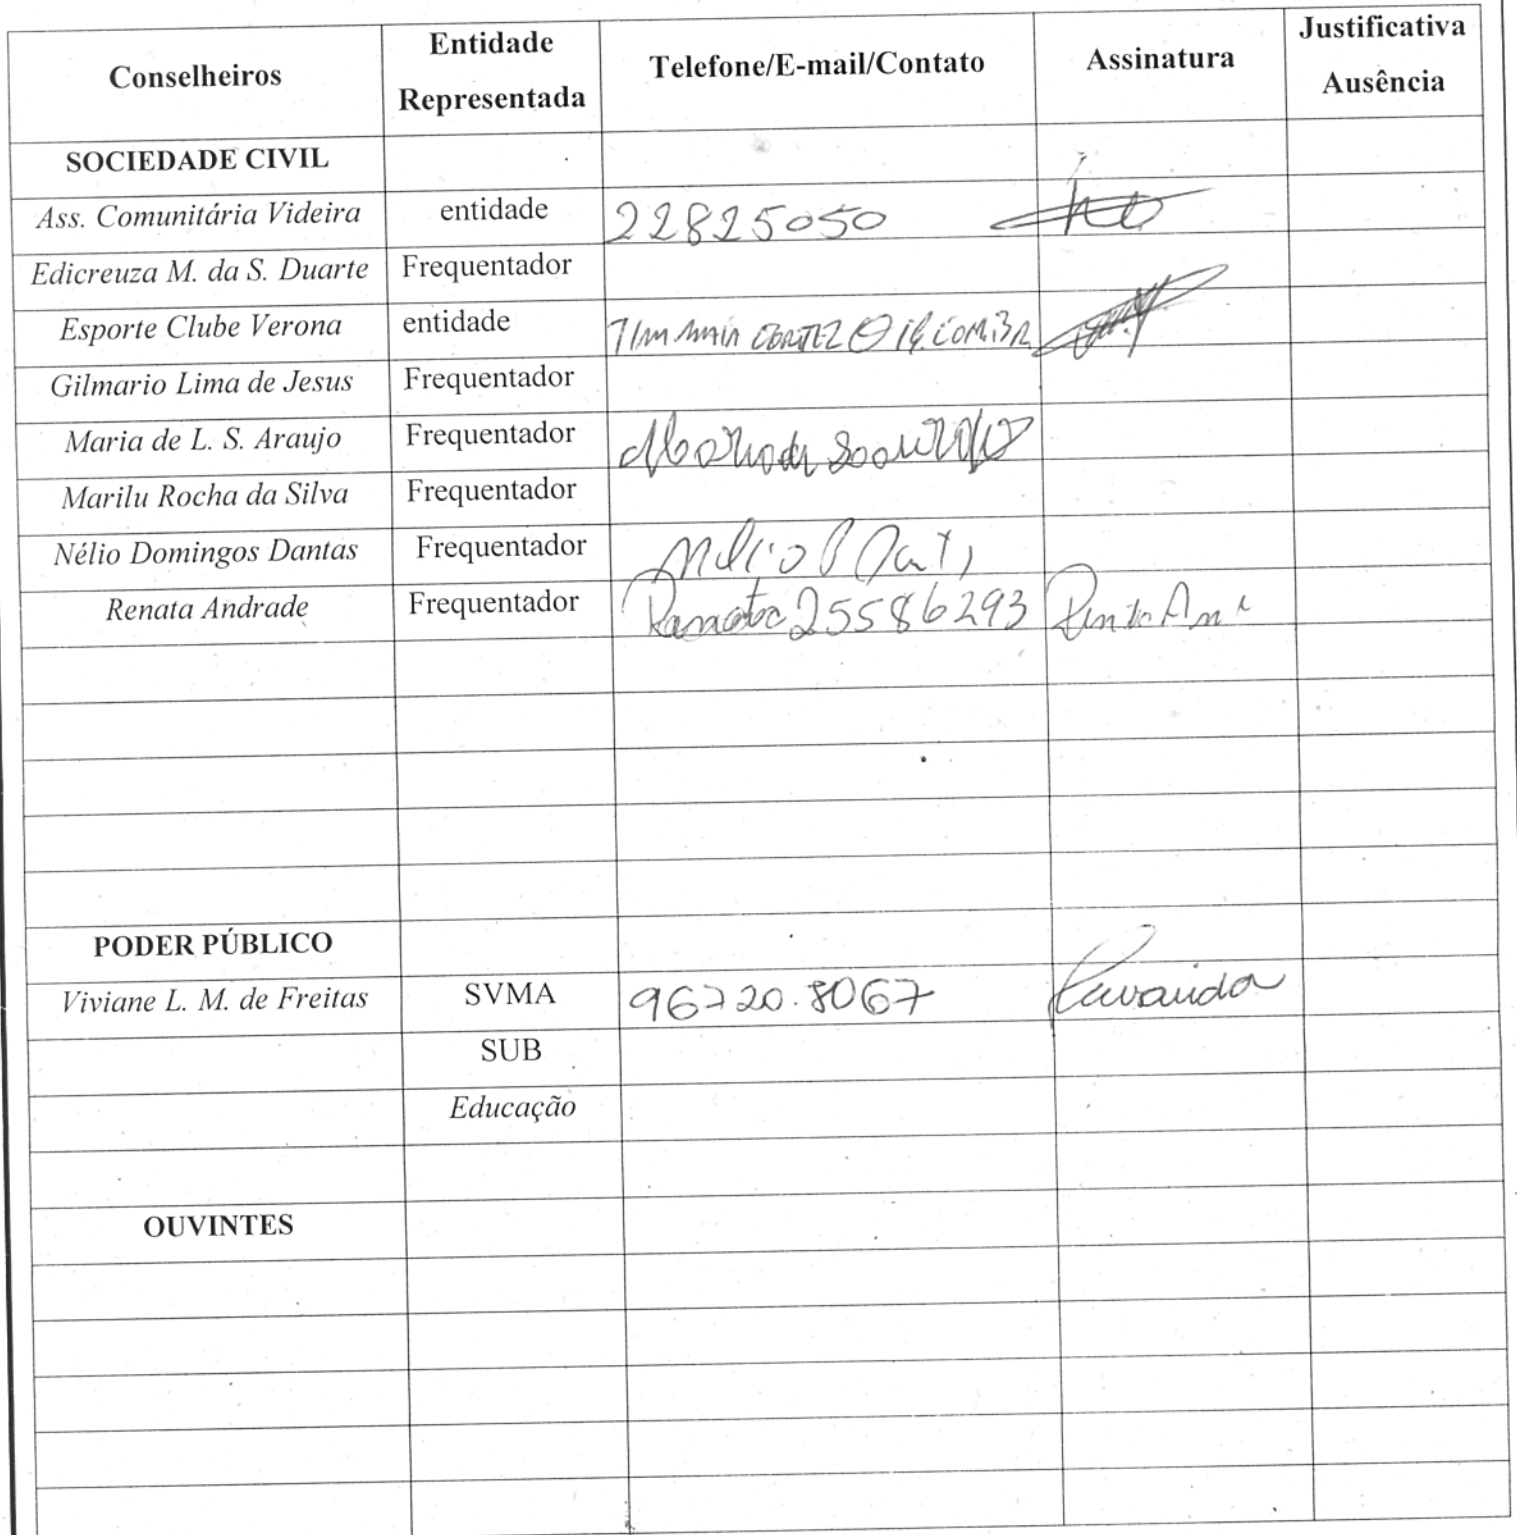 Conselheiros Entidade Representada Telefone/E-mail/Contato Assinatura Justificativa Ausência
SOCIEDADE CIVIL
Ass. Comunitária Videira entidade 22825050
Edicreuza M. da S. Duarte Frequentador
Esporte Clube Verona entidade
Gilmario Lima de Jesus Frequentador
Maria de L. S. Araujo Frequentador
Marilu Rocha da Silva Frequentador
Nélio Domingos Dantas Frequentador
Renata Andrade Frequentador Renata 25586293
PODER PÚBLICO
Viviane L. M. de Freitas SVMA 96720.8067
SUB
Educação
OUVINTES